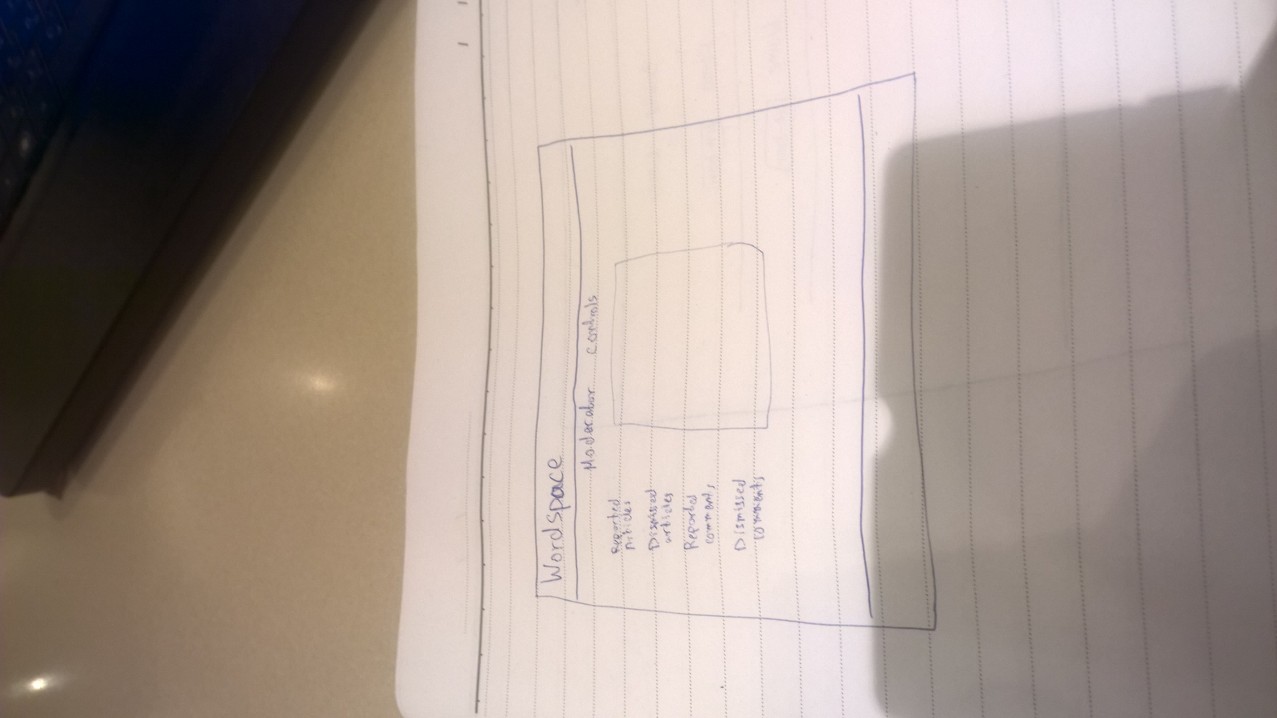 Wordspace
Moderator controls
Reported
Articles
Dismissed
articles
Reported
comments
Dismissed
comments